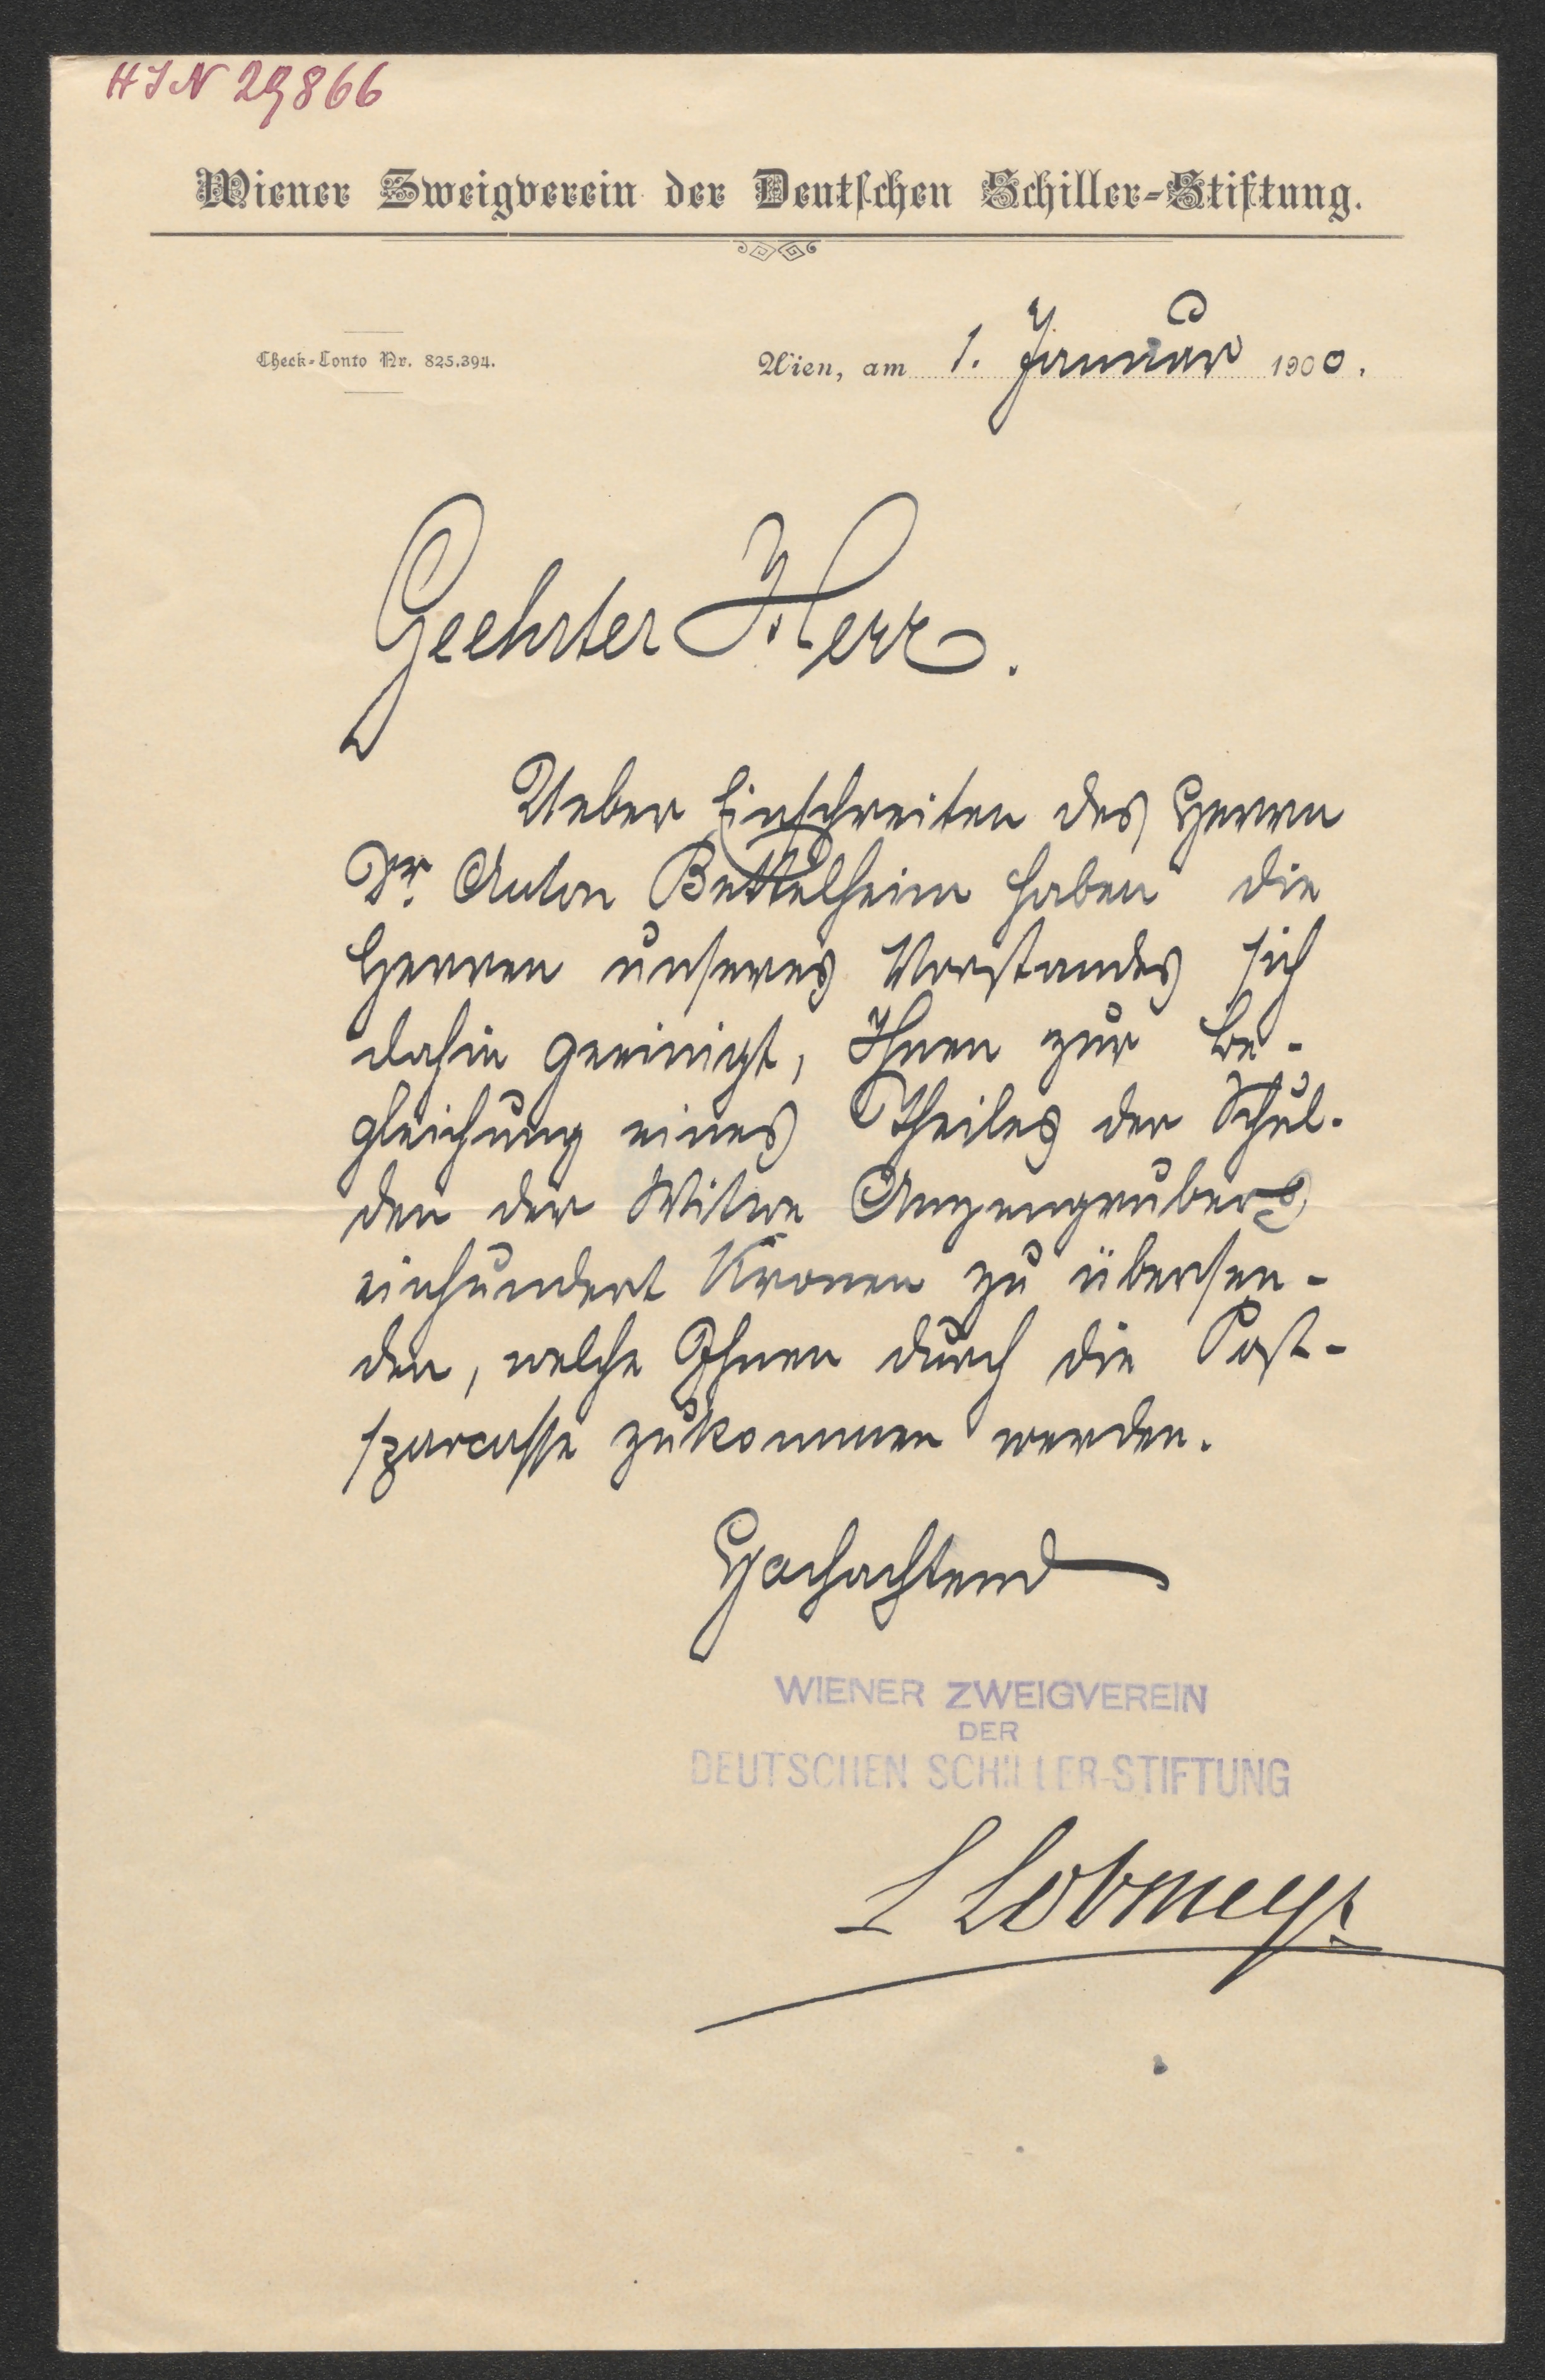 HIN 29866
Wiener Zweigverein der Deutschen Schiller-Stiftung.
Check-Conto Nr. 825.394.
Wien, am 1. Januar 1900.
Geehrter Herr.
Ueber Einschreiten des Herrn
Dr. Anton Bettelheim haben die
Herren unseres Vorstandes sich
dahin geeinigt, Ihnen zur Be-
gleichung eines Theiles der Schul-
den der Witwe Anzengrubers
einhundert Kronen zu übersen-
den, welche Ihnen durch die Post-
sparcasse zukommen werden.
Hochachtend
WIENER ZWEIGVEREIN
DER
DEUTSCHEN SCHILLER-STIFTUNG
L Lobmeyr